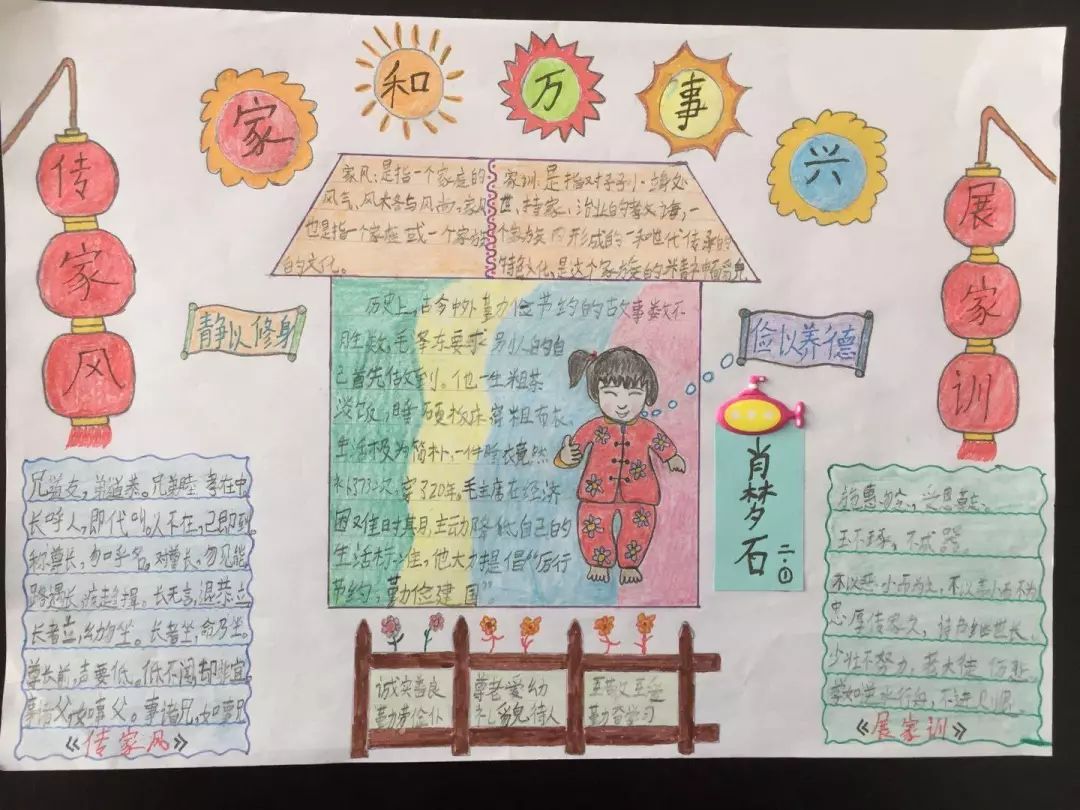 家和万事兴
传家风
展家训
家风:是指一个家庭的
风气、风格与风尚,家风
也是指一个家庭或一个家族
的文化。
家训:是指对子孙立身处
世、持家、治业的教诲,一
个家族内形成的一种世代传承的
特色文化,是这个家族的
静以修身
俭以养德
历史上,古今中外勤力俭节约的故事数不
胜数,毛泽东要求别人的自
己首先做到。他一生粗茶
淡饭,睡硬板床穿粗布衣,
生活极为简朴,一件睡衣竟然
补了73次,穿了20年。毛主席在经济
困又难时其月,主动降低自己的
生活标准,他大力提倡“厉行
节约,勤俭建国”
肖梦石
二.①
兄道友,弟道恭。兄弟睦,孝在中
长呼人,即代叫。人不在,己即到
称尊长,勿呼名。对尊长,勿见能
路遇长,疾趋揖。长无言,退恭立
长者立,幼勿坐。长者坐,命乃坐。
尊长前,声要低。低不闻,却非宜
事诸父,如事父。事诸兄,如事兄
《传家风》
施惠勿念,受恩莫忘。
玉不琢,不成器。
不以恶小而为之,不以善小而不为
忠厚传家久,诗书继世长。
少壮不努力,老大徒伤悲。
学如逆水行舟,不进则退。
《展家训》
诚实善良
勤劳俭仆
尊老爱幼
礼貌待人
勤奋学习